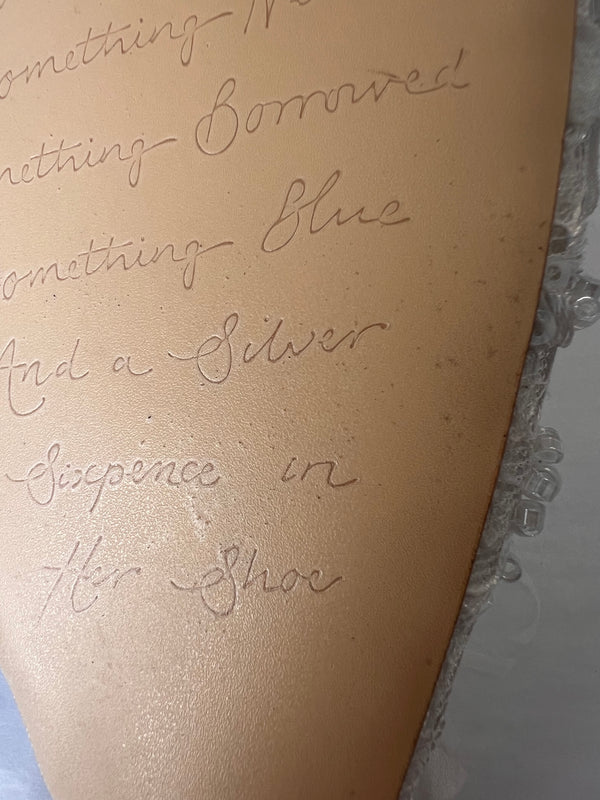 omething Ne
mething Borrowed
omething Blue
And a Silver
Sixpence in
Her Shoe